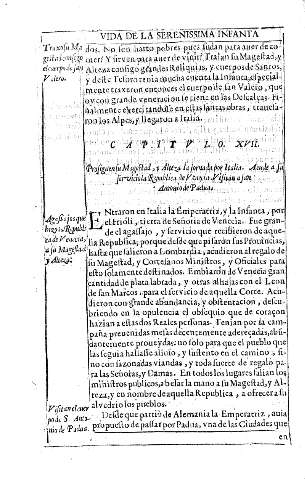 VIDA DE LA SERENISSIMA INFANTA
Traxo su Ma
gestad consigo
el cuerpo de san
Valero.
dos. No son hartos pobres pues sudan para auer de co-
mer? Y siruen para auer de viuir? Traîan su Magestad, y
Alteza consigo grandes Reliquias, y cuerpos de Santos,
y deste Tesoro tenia mucha cuenta la Infanta, especial-
mente traxeron entonces el cuerpo de san Valerio, que
oy con grande veneracion se tiene en las Descalças. Fi-
nalmente exercitandose en estas santas obras, transfera-
ron los Alpes, y llegaron a Italia.
CAPITVLO. XVII.
Prosiguen su Magestad, y Alteza la jornada por Italia. Acude a su
seruicio la Republica de Venecia. Visitan a san
Antonio de Padua.
Agasajos que
hizo la Republi
ca de Venecia,
a su Magestad
y Alteza.
ENtraron en Italia la Emperatriz, y la Infanta, por
el Friôli, tierra de Señoria de Venecia. Fue grande
el agasajo, y seruicio que recibieron de aque-
lla Republica; porque desde que pisaron sus Prouincias,
hasta que salieron a Lombardia, acudieron al regalo de
su Magestad, y Cortesanos Ministros, y Oficiales para
esto solamente destinados. Embiaron de Venecia gran
cantidad de plata labrada, y otras alhajas con el Leon
de san Marcos, para el seruicio de aquella Corte. Acu-
dieron con grande abundancia, y obstentacion, descu-
briendo en la opulencia el obsequio que de coraçon
hazian a estas dos Reales personas. Tenian por la cam-
paña preuenidas mesas decentemente adereçadas, abû-
dantemente proueydas: no solo para que el pueblo que
las seguia hallasse aliuio, y sustento en el camino, si-
no con sazonadas viandas, y toda suerte de regalo pa-
ra las Señoras, y Damas. En todos los lugares salian los
ministros publicos, a besar la mano a su Magestad, y Al-
teza, y en nombre de aquella Republica, a ofrecer a su
aluedrio los pueblos.
Visita el cuer
po de S. Anto
nio de Padua.
Desde que partiò de Alemania la Emperatriz, auia
propuesto de passar por Padua, vna de las Ciudades que
en